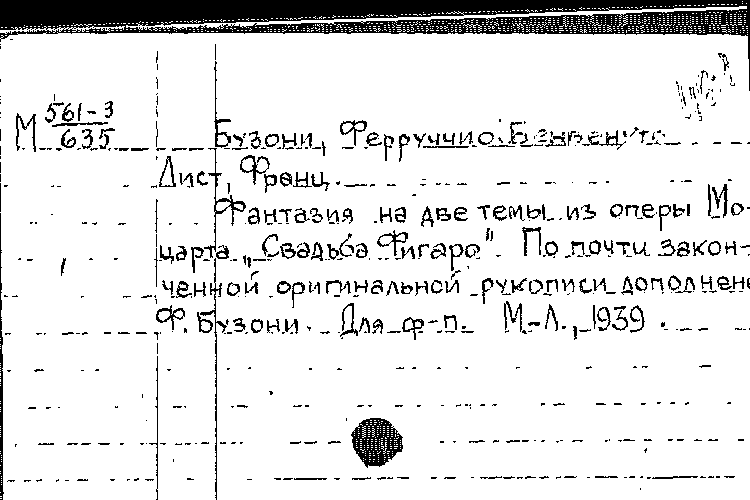 М 561-3
635
Бузони, Ферруччио Бенвенуто
Лист, Франц.
Фантазия на две темы из оперы Мо-
царта „Свадьба Фигаро". По почти закон-
ченной оригинальной рукописи дополнена
Ф. Бузони. Для ф-п. М.-Л., 1939.